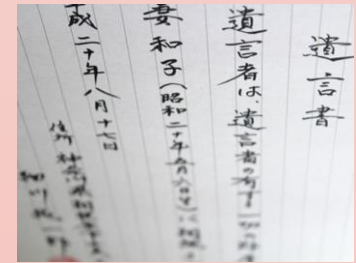 遺言書
遺言者は、遺言者の有する一切の財
妻和子（昭和二十年五月六日生）に相続
平成二十年八月十七日
住所 神奈川県
細川